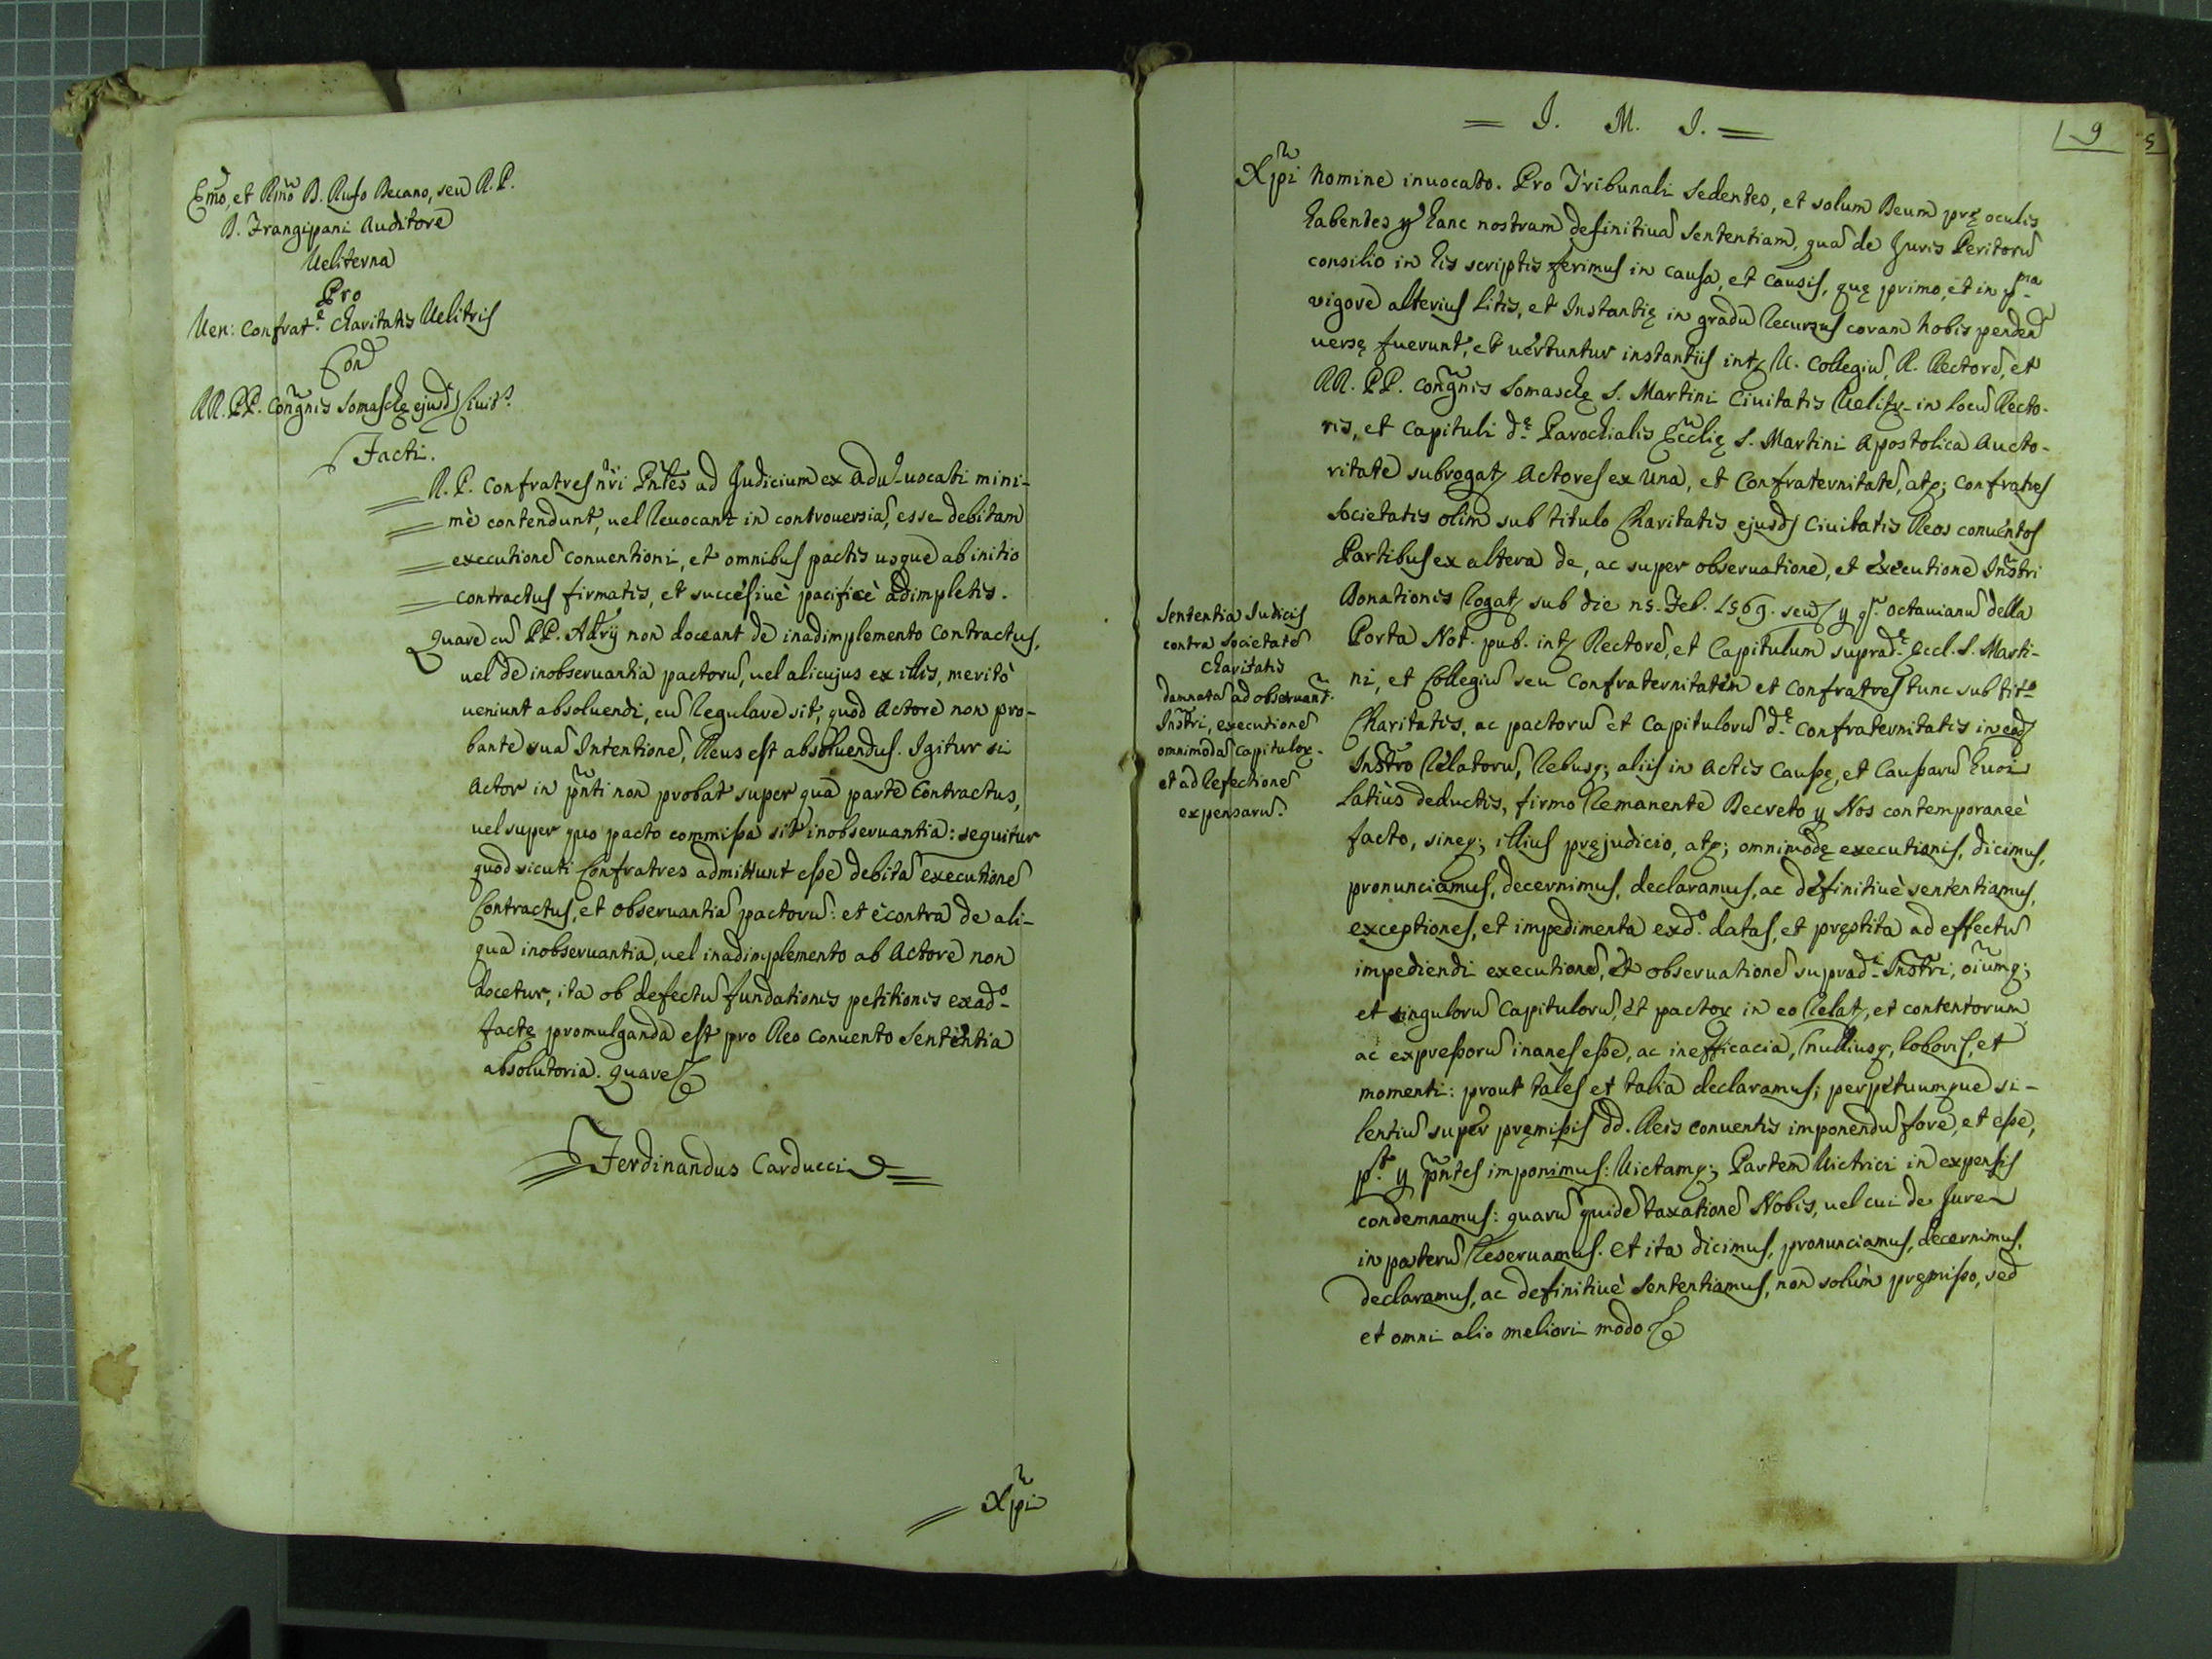 Emo, et Rmo D. Rufo Decano, seu R. P.
D. Frangipani Auditore
Veliterna
Pro
Ven: Confrat.e Charitatis Velitris
Con
RR. PP. Congnis Somaschę ejusd Civit.s
Facti.
R. P. Confratres nri Pntes ad Judicium ex adv-vocati mini-
mè contendunt, vel revocant in controversiã, esse debitam
executionẽ conventioni, et omnibus pactis usque ab initio
contractus firmatis, et succesivè pacificè adimpletis.
Quare cũ PP. Actrij non doceant de inadimplemento contractus,
vel de inobservantia pactorũ, vel alicujus ex illis, meritò
veniunt absolvendi, cũ regulare sit, quod Actore non pro-
bante suã Intentionẽ, Reus est absolvendus. Igitur si
Actor in pñti non probat super qua parte Contractus,
vel super quo pacto commissa sit inobservantia: sequitur
quod sicuti Confratres admittunt esse debitã executionẽ
Contractus, et observantiã pactorũ: et è contra de ali-
qua inobservantia, vel inadimplemento ab Actore non
docetur, ita ob defectũ fundationis petitionis ex ad.o
factę promulganda est pro Reo Convento Sententia
absolutoria. Quare &
Ferdinandus Carducci
Xpi
= J. M. J. =
9
5
Xpi Nomine invocato. Pro Tribunali Sedentes, et solum Deum prę oculis
habentes p hanc nostram definitivã Sententiam, quã de Juris Peritorũ
consilio in his scriptis ferimus in causa, et causis, quę primo, et in p.ma
vigore alterius Litis, et Instantię in gradu recursus coram Nobis penden
versę fuerunt, et vertuntur instantiis int V. Collegiũ, R. Rectorẽ, et
RR. PP. Congnis Somaschę S. Martini Civitatis Velitr- in locũ Recto-
ris, et Capituli d.ę Parochialis Ecclię S. Martini Apostolica Aucto-
ritate subrogat Actores ex Una, et Confraternitatẽ, atq; Confratres
Societatis olim sub titulo Charitatis ejusd Civitatis Reos conventos
Partibus ex altera de, ac super observatione, et executione Instri
Donationis rogat sub die 15. Feb. 1569. seu p q. Octavianũ della
Porta Not. pub. int Rectorẽ, et Capitulum suprad.ę Eccl. S. Marti-
ni, et Collegiũ seu Confraternitatem et Confratres tunc sub tit.o
Charitatis, ac pactorũ et Capitulorũ d.ę Confraternitatis in eod
Instro relatorũ, rebusq; aliis in Actis Causę, et Causarũ hmoi
latiùs deductis, firmo remanente Decreto p Nos contemporaneè
facto, sineq; illius pręjudicio, atq; omnimodę executionis, dicimus,
pronunciamus, decernimus, declaramus, ac definitivè sententiamus,
exceptiones, et impedimenta ex ad.o datas, et pręstita ad effectũ
impediendi executionẽ, et observationẽ suprad.i Instri, oĩumq;
et singulorũ Capitulorũ, et pactor in eo relat, et contentorum
ac expressorũ inanes esse, ac inefficacia, nulliusq, roboris, et
momenti: prout tales et talia declaramus; perpetuumque si-
lentiũ super pręmissis dd. Reis conventis imponendũ fore, et esse,
p.t p pñtes imponimus: Victamq; Partem Victrici in expensis
condemnamus: quarũ quidẽ taxationẽ Nobis, vel cui de Jure
in posterũ reservamus. Et ita dicimus, pronunciamus, decernimus,
declaramus, ac definitivè sententiamus, non solùm pręmisso, sed
et omni alio meliori modo &
Sententia Judicis
contra Societatẽ
Charitatis
damnatã ad observant.
Instri, executionẽ
omnimodã capitulor.
et ad refectionẽ
expensarũ.